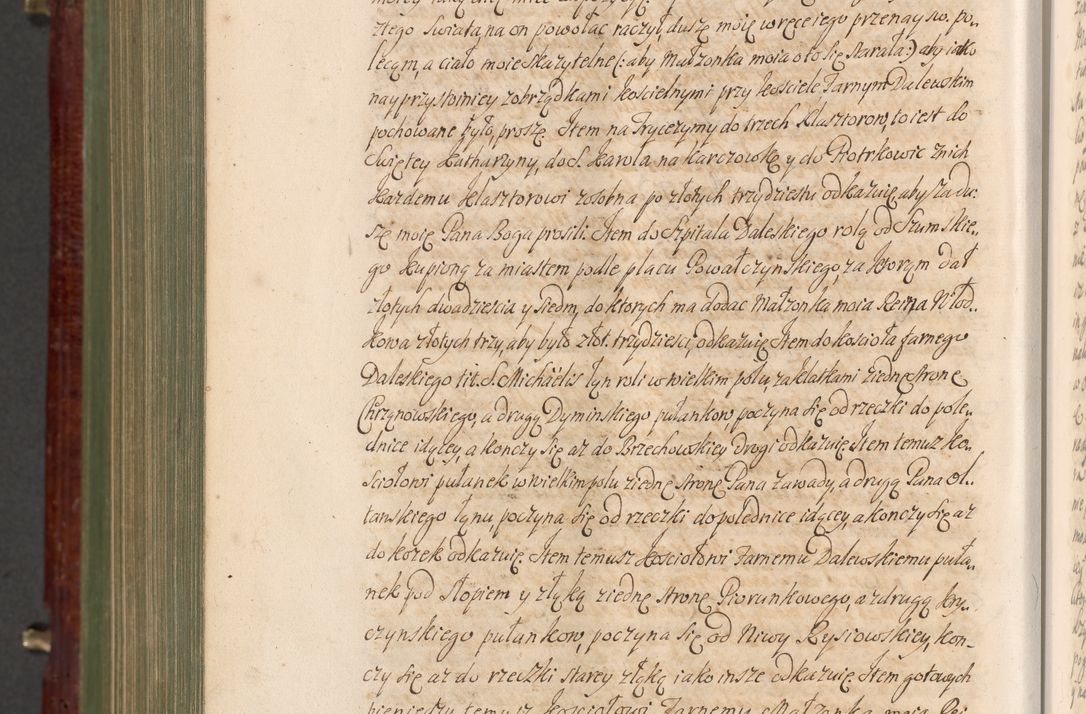 ztego swiata na on powołac raczył duszę moię w ręce iego przenayśw. po„
lecam, a ciało moie skazytelne (: aby Małzonka moia oto się starała :) aby iako
nayprzystoiniey zobrządkami koscielnymi przy kosciele Farnym Dalewskim
pochowane było, proszę. Item na Tryceżymy do trzech Klasztorow, to iest do
Swiętey Katharzyny, do S. Karola na Karczowkę y do Piotrkowic z nich
kazdemu klasztorowi zosobna po złotych trzydziestu odkazuię aby za du:
szę moię Pana Boga prosili. Item do Szpitala Daleskiego rolą od Szumskie„
go kupioną za miastem podle placu Powałczynskiego, za ktorym dał
złotych dwadziescia y siedm, do ktorych ma dodac Małzonka moia Reina Włod„
kowa złotych trzy, aby było złot. trzydziesci, odkazuię Item do kosciola farnego
Daleskiego tit. S. Michaëlis łyn roli w wielkim polu, za klatkami z iednę stronę
Chrzynowskiego, a drugą Dyminskiego pułankow, poczyna się od rzeczki do połe„
dnice idącey, a konczy się az do Brzechowskiey drogi odkazuię Item temuz ko„
sciołowi pułanek w wielkim polu z iednę stronę Pana Zawady, a drugą Pana Ol„
tanskiego łynu poczyna się od rzeczki do połednice idącey, a konczy się az
do kozek odkazuię. Item temusz kosciołowi Farnemu Dalewskiemu puła„
nek pod słopiem y z łąką z iednę stronę Piorunkowego, a z drugą Kry„
czynskiego pułankow, poczyna się od Niwy Rysiowskiey, kon„
czy się az do rzeczki starey z łąką iako insze odkazuię Item gotowych
pieniędzy temusz kosciołowi Farnemu Małzonka moia Rei„